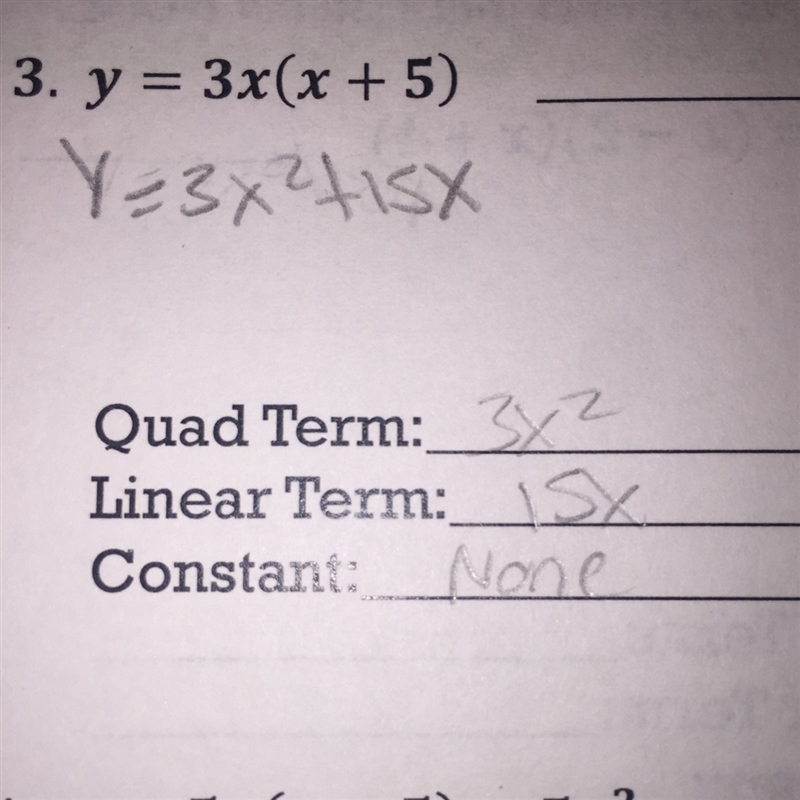 3. y = 3x(x + 5)
Y=3x²+15x
Quad Term: 3x²
Linear Term: 15x
Constant: None